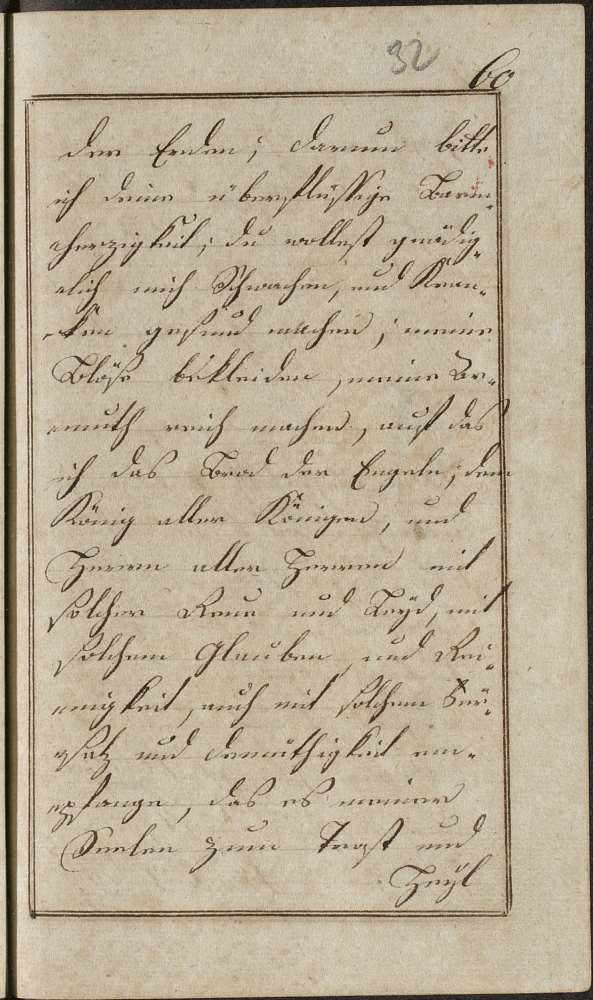 32
60
der Erden; darum bitte
ich deine überflüssige Barm-
herzigkeit, du wollest gnädig-
lich mich Schwachen, und Kran-
ken gesund machen; meine
Blöse bekleiden, meine Ar-
muth reich machen, auf das
ich das Brod der Engeln; den
König aller Königen, und
Herren aller Herren mit
solcher Reue und Leyd, mit
solchem Glauben, und Rei-
nigkeit, auch mit solchem Für-
satz und demüthigkeit em-
pfange, das es meiner
Seelen zum Trost und
Heyl